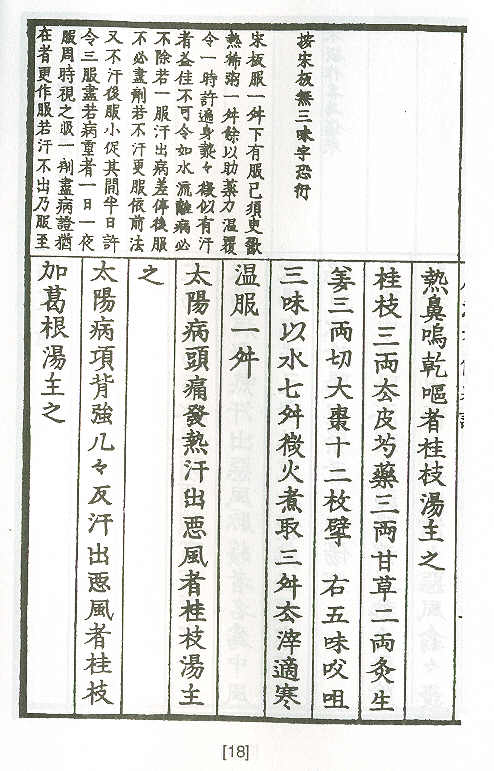 按宋板無三味字恐衍
宋板服一舛下有服已須臾歠
熱稀粥一舛餘以助藥力温覆
令一時許遍身漐々微似有汗
者益佳不可令如水流離病必
不除若一服汗出病差停後服
不必盡劑若不汗更服依前法
又不汗後服小促其間半日許
令三服盡若病重者一日一夜
服周時視之服一劑盡病證猶
在者更作服若汗不出乃服至
熱鼻嗚乾嘔者桂枝湯主之
桂枝三両去皮芍藥三両甘草二両灸生
姜三両切大棗十二枚擘 右五味㕮咀
三味以水七舛微火煮取三舛去滓適寒
温服一舛
太陽病頭痛發熱汗出悪風者桂枝湯主
之
太陽病項背強几々反汗出悪風者桂枝
加葛根湯主之
[18]